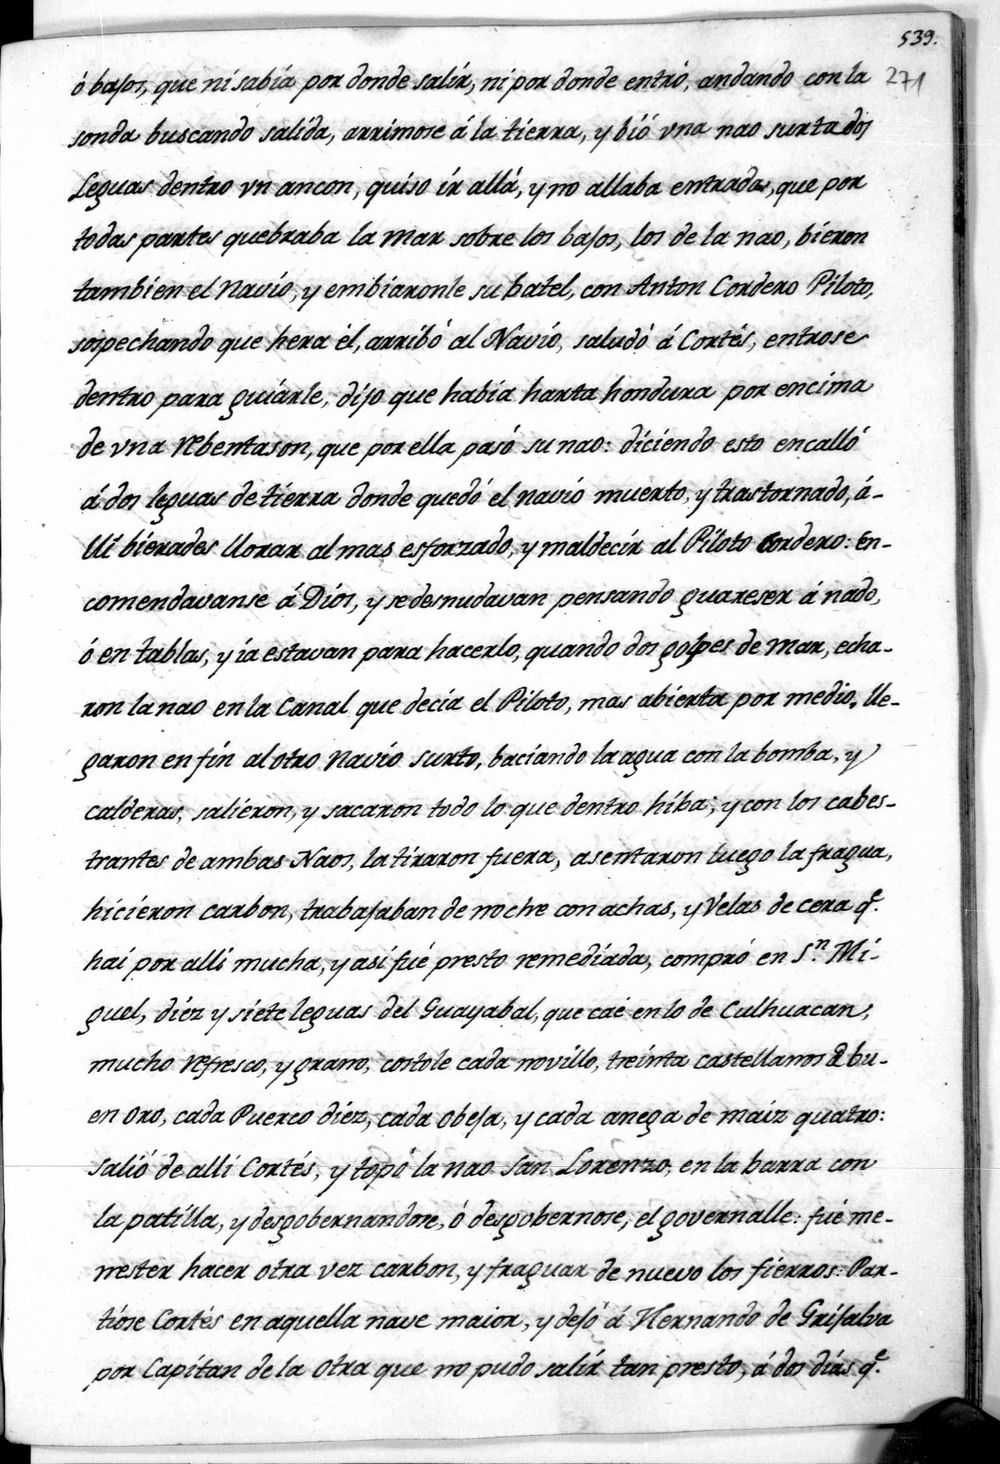 539.
271
ó bajos, que ni sabía por donde salír, ni por donde entró, andando con la
sonda buscando salída, arrimose á la tierra, y bíó vna nao surta dos
Leguas dentro vn ancon, quiso ír allá, y no allaba entradas, que por
todas partes quebraba la Mar sobre los bajos, los de la nao, bíeron
tambien el Navío, y embiaronle su batel, con Anton Cordero Píloto,
sospechando que hera él, arribó al Navío, saludó á Cortés, entrose
dentro para guíarle, díjo que había harta hondura por encima
de vna rebentason, que por ella pasó su nao: díciendo esto encalló
á dos leguas de tierra donde quedó el navío muerto, y trastornado, á-
llí bierades llorar al mas esforzado, y maldecír al Píloto Cordero: En-
comendavanse á Díos, y se desnudavan pensando guareser á nado,
ó en tablas, y ía estavan para hacerlo, quando dos golpes de Mar, echa-
ron la nao en la Canal que decía el Píloto, mas abierta por medio, lle-
garon en fín al otro Navío surto, bacíando la agua con la bomba, y
calderas, salíeron, y sacaron todo lo que dentro híba; y con los cabes-
trantes de ambas Naos, la tíraron fuera, asentaron luego la fragua,
hícíeron carbon, trabajaban de noche con achas, y Velas de cera q.e
hai por allí mucha, y así fué presto remedíada, compró en S.n Mí-
guel, díez y síete leguas del Guayabal, que caé en lo de Culhuacan,
mucho refresco, y grano, costole cada novíllo, treínta castellanos d bu-
en Oro, cada Puerco díez, cada Obeja, y cada anega de maíz quatro:
salíó de allí Cortés, y topó la nao San Lorenzo, en la barra con
la patílla, y desgobernandose, ó desgobernose, el governalle: fué me-
nester hacer otra vez carbon, y fraguar de nuevo los fierros: Par-
tíose Cortés en aquella nave maior, y dejó á Hernando de Gríjalva
por Capítan de la otra que no pudo salír tan presto, á dos días q.e